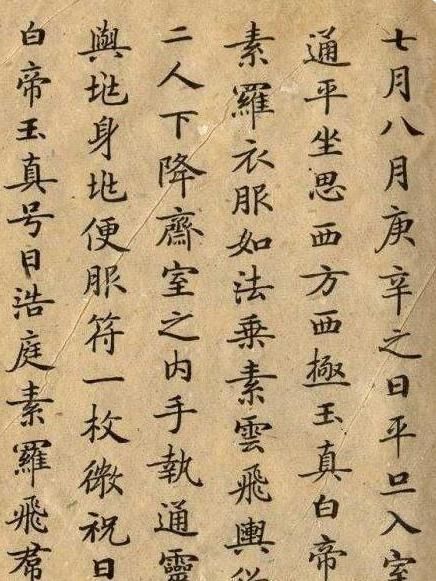 七月八月庚辛之日平旦入室
通平坐思西方西極玉真白帝
素羅衣服如法乗素雲飛輿從
二人下降齋室之内手執通靈
與兆身兆便服符一枚微祝曰
白帝玉真号曰浩庭素羅飛帬